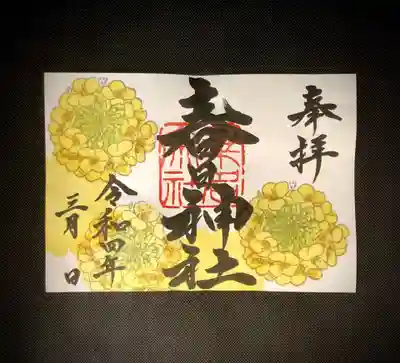 奉拝
春日神社
令和四年
三月 日